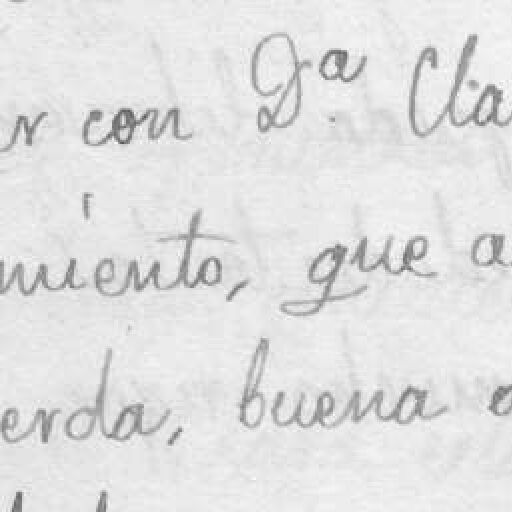 r con Dª. Cla
miento, que a
erda, buena